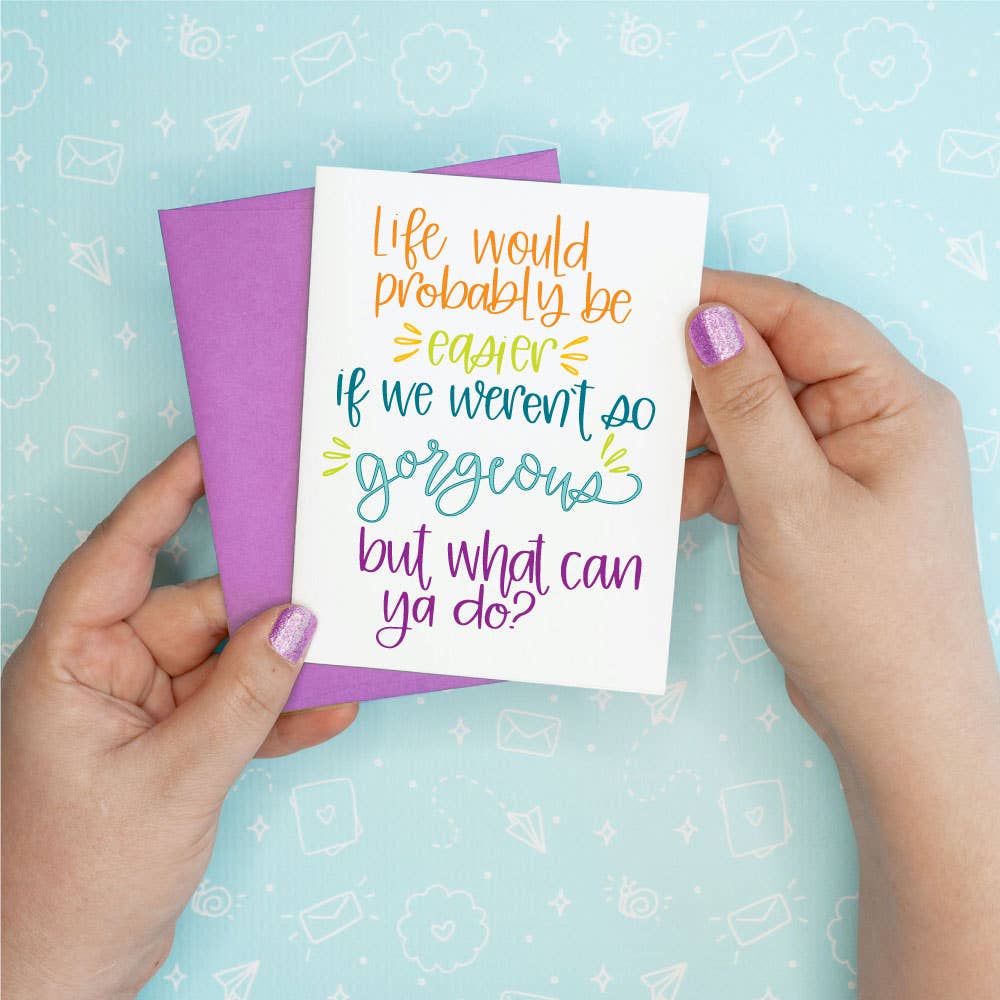 Life would
probably be
easier
if we weren't so
gorgeous
but what can
ya do?